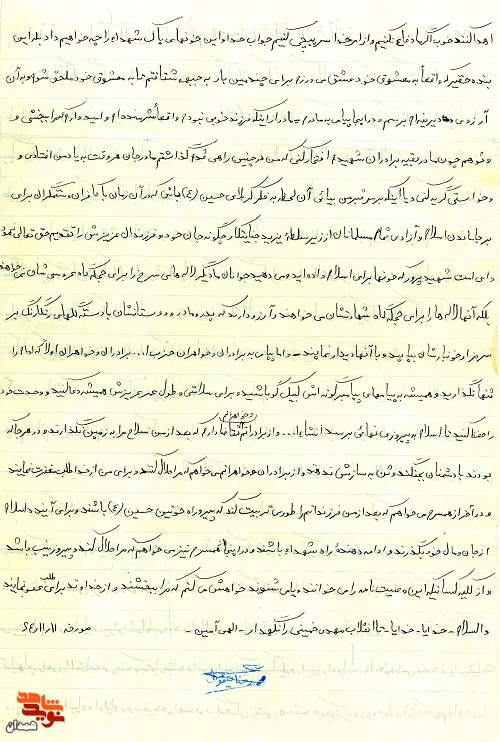 اهدا کنند خوب اگر ما دفاع نکنیم و از امر خدا سرپیچی کنیم جواب خدا و این خونهای پاک شهداء را چه خواهیم داد بله این
بنده حقیر که واقعاً به معشوق خود عشق می ورزم برای چندمین بار به جبهه شتافتم تا به معشوق خود ملحق شوم و به آن
آرزوی دیرینه ام برسم و در اینجا پیامی به مادرم - مادر از اینکه فرزند خوبی نبودم واقعاً شرمنده ام و امیدوارم که مرا ببخشی و
و تو هم چون مادر بقیه برادران شهیدم افتخار کنی که من در چنین راهی قدم گذاشتم مادر جان هر وقت به یاد من افتادی و
خواستی گریه کنی یا اینکه بر سر قبر من بیائی آن لحظه به فکر کربلای حسین (ع) باش که در آن زمان با یاران و ستمگران برای
بر جا ماندن اسلام و آزادی تمام مسلمانان از زیر سلطه یزید جنایتکار چگونه جان خود و فرزندان عزیزش را تقدیم حق تعالی نمود
ای امت شهید پرور که خونها برای اسلام داده اید و می دهید جوانان ما دیگر لاله های سرخ را برای حجله گاه عروسی شان نمی خواهند
بلکه آنها لاله ها را برای حجله گاه شهادتشان می خواهند و آرزو دارند که پدر و مادر و دوستانشان با دسته گلهای رنگارنگ بر
سر مزار خونبارشان بیایید و با آنها دیدار نمایند - و اما پیامی به برادران و خواهران حزب ا... برادران و خواهران اولاً که امام را
تنها نگذارید و همیشه به پیامهای پیامبرگونه اش لبیک گو باشید و برای سلامتی و طول عمر عزیزش همیشه دعا کنید و وحدت خود
را حفظ کنید تا اسلام به پیروزی نهائی برسد انشاءا... و از برادرانم و خواهرانم تقاضا دارم که بعد از من سلاح مرا به زمین نگذارند و در هر جا که
بودند با دشمنان بجنگند و تن به سازش ندهند و از برادران و خواهرانم می خواهم که مرا حلال کنند و برای من از خدا طلب مغفرت نمایند
و در آخر از همسرم می خواهم که بعد از من فرزندانم را طوری تربیت کند که پیرو راه خونین حسین (ع) باشند و برای آینده اسلام
از جان و مال خود بگذرند و ادامه دهندهٔ راه شهداء باشند و در اینجا از همسرم نیز می خواهم که مرا حلال کند و پیرو زینب باشد
و از کلیه کسانیکه این وصیت نامه را می خوانند و یا می شنوند خواهش می کنم که مرا ببخشند و از خداوند برای طلب عفو نمایند
والسلام - خدایا - خدایا - تا انقلاب مهدی خمینی را نگهدار - الهی آمین - مورخه ۶۴/۱۱/۱۱
نوید شاهد
همدان